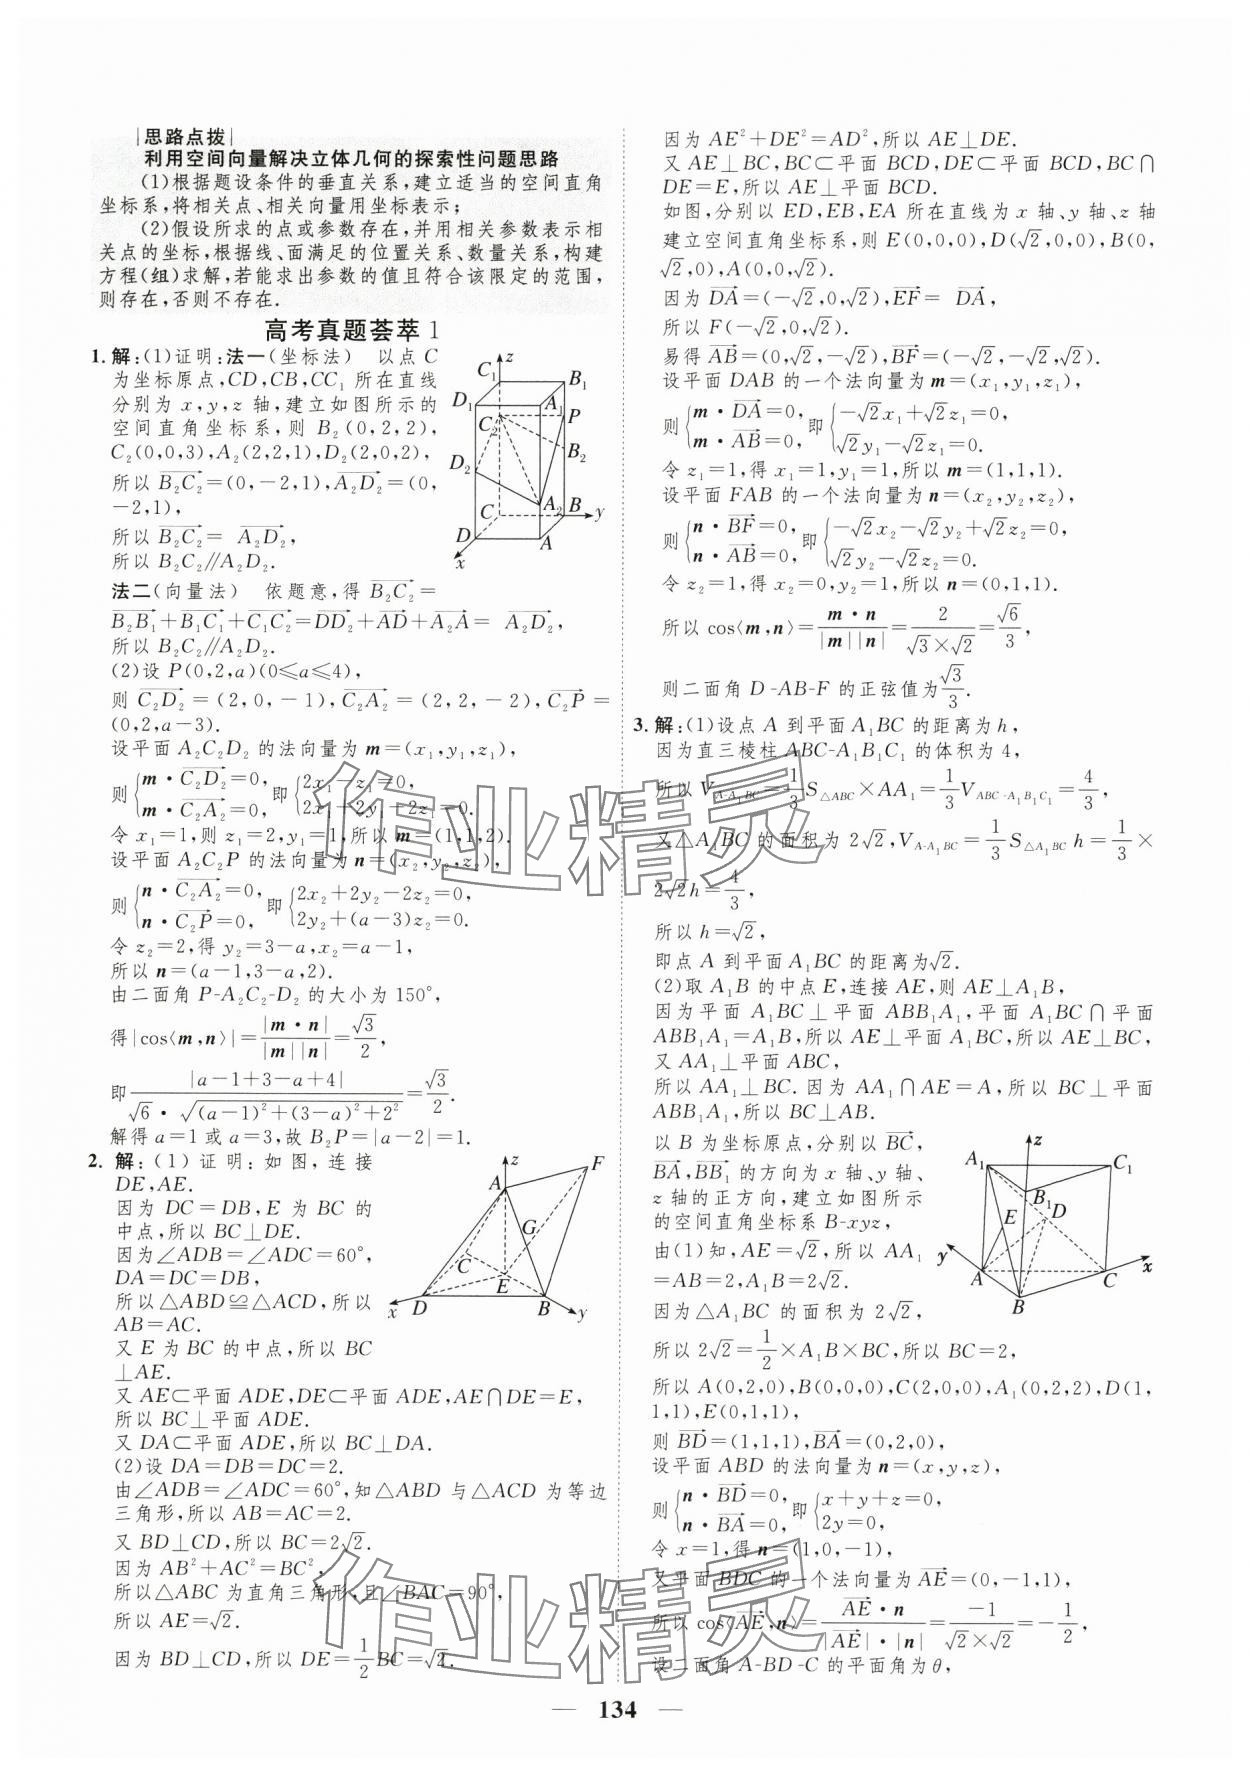 |思路点拨|
利用空间向量解决立体几何的探索性问题思路
(1)根据题设条件的垂直关系,建立适当的空间直角
坐标系,将相关点、相关向量用坐标表示;
(2)假设所求的点或参数存在,并用相关参数表示相
关点的坐标,根据线、面满足的位置关系、数量关系,构建
方程(组)求解,若能求出参数的值且符合该限定的范围,
则存在,否则不存在.
高考真题荟萃 1
1. 解:(1)证明:法一(坐标法) 以点 C
为坐标原点,CD,CB,CC₁ 所在直线
分别为 x,y,z 轴,建立如图所示的
空间直角坐标系,则 B₂(0,2,2),
C₂(0,0,3),A₂(2,2,1),D₂(2,0,2),
所以 \overrightarrow{B₂C₂}=(0,-2,1),\overrightarrow{A₂D₂}=(0,
-2,1),
所以 \overrightarrow{B₂C₂}= \overrightarrow{A₂D₂},
所以 B₂C₂∥A₂D₂.
法二(向量法) 依题意,得 \overrightarrow{B₂C₂}=
\overrightarrow{B₂B₁}+\overrightarrow{B₁C₁}+\overrightarrow{C₁C₂}=\overrightarrow{DD₂}+\overrightarrow{AD}+\overrightarrow{A₂A}= \overrightarrow{A₂D₂},
所以 B₂C₂∥A₂D₂.
(2)设 P(0,2,a)(0⩽a⩽4),
则 \overrightarrow{C₂D₂}=(2,0,-1),\overrightarrow{C₂A₂}=(2,2,-2),\overrightarrow{C₂P}=
(0,2,a-3).
设平面 A₂C₂D₂ 的法向量为 m=(x₁,y₁,z₁),
则 {m·\overrightarrow{C₂D₂}=0, 即 {2x₁-z₁=0,
m·\overrightarrow{C₂A₂}=0, 2x₁+2y₁-2z₁=0,
令 x₁=1,则 z₁=2,y₁=1,所以 m=(1,1,2).
设平面 A₂C₂P 的法向量为 n=(x₂,y₂,z₂),
则 {n·\overrightarrow{C₂A₂}=0, 即 {2x₂+2y₂-2z₂=0,
n·\overrightarrow{C₂P}=0, 2y₂+(a-3)z₂=0.
令 z₂=2,得 y₂=3-a,x₂=a-1,
所以 n=(a-1,3-a,2).
由二面角 P-A₂C₂-D₂ 的大小为 150°,
得|cos⟨m,n⟩|=|m·n|/(|m||n|)=√3/2,
即 |a-1+3-a+4|/(√6·√((a-1)²+(3-a)²+2²))=√3/2.
解得 a=1 或 a=3,故 B₂P=|a-2|=1.
2. 解:(1)证明:如图,连接
DE,AE.
因为 DC=DB,E 为 BC 的
中点,所以 BC⊥DE.
因为∠ADB=∠ADC=60°,
DA=DC=DB,
所以△ABD≌△ACD,所以
AB=AC.
又 E 为 BC 的中点,所以 BC
⊥AE.
又 AE⊂平面 ADE,DE⊂平面 ADE,AE∩DE=E,
所以 BC⊥平面 ADE.
又 DA⊂平面 ADE,所以 BC⊥DA.
(2)设 DA=DB=DC=2.
由∠ADB=∠ADC=60°,知△ABD 与△ACD 为等边
三角形,所以 AB=AC=2.
又 BD⊥CD,所以 BC=2√2.
因为 AB²+AC²=BC²,
所以△ABC 为直角三角形,且∠BAC=90°,
所以 AE=√2.
因为 BD⊥CD,所以 DE=1/2BC=√2.
因为 AE²+DE²=AD²,所以 AE⊥DE.
又 AE⊥BC,BC⊂平面 BCD,DE⊂平面 BCD,BC∩
DE=E,所以 AE⊥平面 BCD.
如图,分别以 ED,EB,EA 所在直线为 x 轴、y 轴、z 轴
建立空间直角坐标系,则 E(0,0,0),D(√2,0,0),B(0,
√2,0),A(0,0,√2).
因为 \overrightarrow{DA}=(-√2,0,√2),\overrightarrow{EF}= \overrightarrow{DA},
所以 F(-√2,0,√2).
易得 \overrightarrow{AB}=(0,√2,-√2),\overrightarrow{BF}=(-√2,-√2,√2).
设平面 DAB 的一个法向量为 m=(x₁,y₁,z₁),
则 {m·\overrightarrow{DA}=0, 即 {-√2x₁+√2z₁=0,
m·\overrightarrow{AB}=0, √2y₁-√2z₁=0.
令 z₁=1,得 x₁=1,y₁=1,所以 m=(1,1,1).
设平面 FAB 的一个法向量为 n=(x₂,y₂,z₂),
则 {n·\overrightarrow{BF}=0, 即 {-√2x₂-√2y₂+√2z₂=0,
n·\overrightarrow{AB}=0, √2y₂-√2z₂=0.
令 z₂=1,得 x₂=0,y₂=1,所以 n=(0,1,1).
所以 cos⟨m,n⟩=m·n/(|m||n|)=2/(√3×√2)=√6/3,
则二面角 D-AB-F 的正弦值为√3/3.
3. 解:(1)设点 A 到平面 A₁BC 的距离为 h,
因为直三棱柱 ABC-A₁B₁C₁ 的体积为 4,
所以 V_{A-A₁BC}=1/3S_{△ABC}×AA₁=1/3V_{ABC-A₁B₁C₁}=4/3,
又△A₁BC 的面积为 2√2,V_{A-A₁BC}=1/3S_{△A₁BC}h=1/3×
2√2h=4/3,
所以 h=√2,
即点 A 到平面 A₁BC 的距离为√2.
(2)取 A₁B 的中点 E,连接 AE,则 AE⊥A₁B,
因为平面 A₁BC⊥平面 ABB₁A₁,平面 A₁BC∩平面
ABB₁A₁=A₁B,所以 AE⊥平面 A₁BC,所以 AE⊥BC,
又 AA₁⊥平面 ABC,
所以 AA₁⊥BC.因为 AA₁∩AE=A,所以 BC⊥平面
ABB₁A₁,所以 BC⊥AB.
以 B 为坐标原点,分别以 \overrightarrow{BC},
\overrightarrow{BA},\overrightarrow{BB₁} 的方向为 x 轴、y 轴、
z 轴的正方向,建立如图所示
的空间直角坐标系 B-xyz,
由(1)知,AE=√2,所以 AA₁
=AB=2,A₁B=2√2.
因为△A₁BC 的面积为 2√2,
所以 2√2=1/2×A₁B×BC,所以 BC=2,
所以 A(0,2,0),B(0,0,0),C(2,0,0),A₁(0,2,2),D(1,
1,1),E(0,1,1),
则 \overrightarrow{BD}=(1,1,1),\overrightarrow{BA}=(0,2,0),
设平面 ABD 的法向量为 n=(x,y,z),
则 {n·\overrightarrow{BD}=0, 即 {x+y+z=0,
n·\overrightarrow{BA}=0, 2y=0.
令 x=1,得 n=(1,0,-1),
又平面 BDC 的一个法向量为 \overrightarrow{AE}=(0,-1,1),
所以 cos⟨\overrightarrow{AE},n⟩=\overrightarrow{AE}·n/(|\overrightarrow{AE}|·|n|)=-1/(√2×√2)=-1/2,
设二面角 A-BD-C 的平面角为 θ,
— 134 —
作业精灵
作业精灵